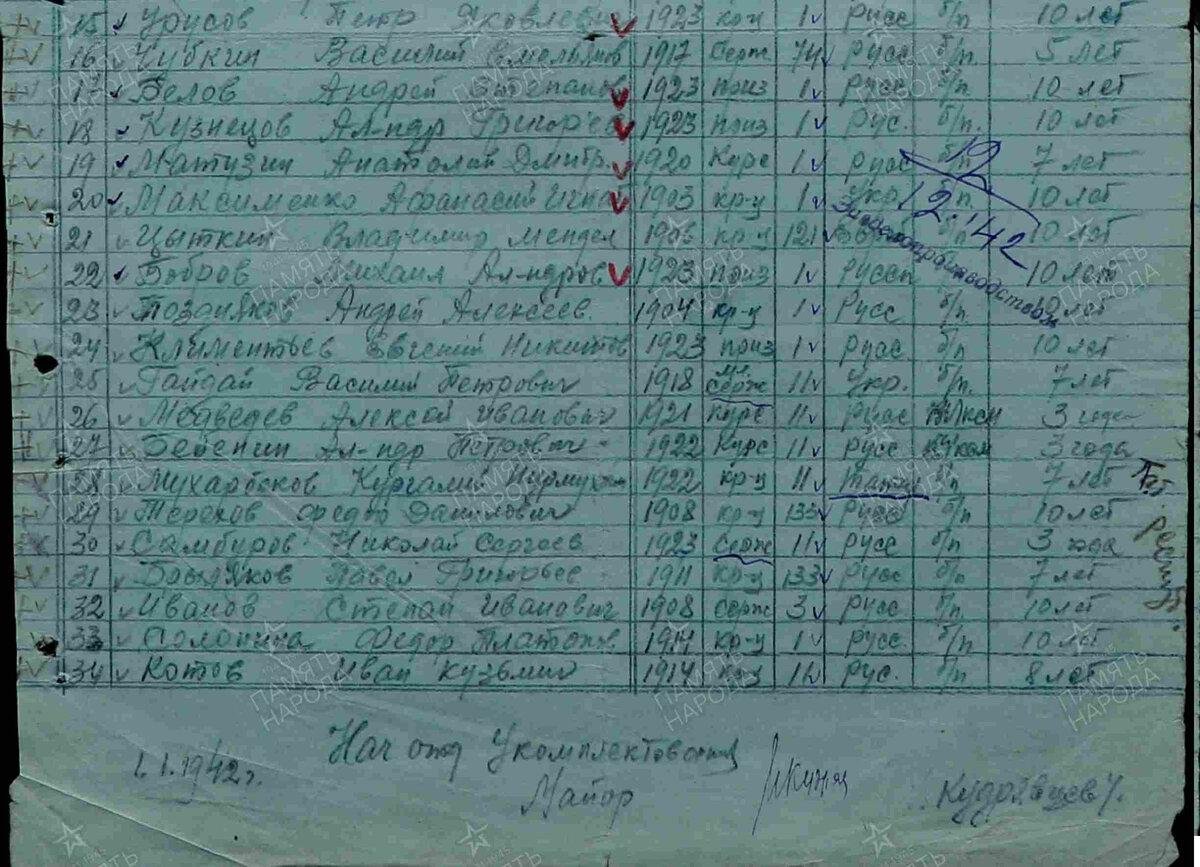 15 Урусов Петр Яковлевич 1923 кр-ц 1 Русс б/п 10 лет
16 Чубкин Василий Емельянов 1917 Серж 74 Русс б/п. 5 лет
17 Белов Андрей Степанов 1923 приз 1 Русс б/п. 10 лет
18 Кузнецов Ал-ндр Григор'ев 1923 приз 1 Рус. б/п. 10 лет
19 Матузин Анатолий Дмитр. 1920 Курс 1 русс б/п 7 лет
20 Максименко Афанасий Игнат 1903 кр-ц 1 Укр. б/п. 10 лет
21 Цыткин Владимир Мендел 1906 кр-ц 121 б/п 10 лет
12.1.42
22 Бобров Михаил Ал-ндров 1923 приз 1 Русск 10 лет
23 Поздняков Андрей Алексеев. 1904 кр-ц 1 Русс б/п лет
24 Климентьев Евгений Никитов 1923 приз 1 Русс б/п 10 лет
25 Гайдай Василий Петрович 1918 мл. серж 11 Укр. б/п. 7 лет
26 Медведев Алексей Иванович 1921 Курс 11 Русс 3 года
27 Бебенин Ал-ндр Петрович 1922 Курс 11 Русс 3 года
28 Мухарбеков Кургалий 1922 кр-ц 11 б/п 7 лет
29 Терехов Федор Данилович 1908 кр-ц 133 Русс б/п 10 лет
30 Самбуров Николай Сергеев 1923 Серж 11 Русс б/п 3 года
31 Павел Григорьев 1911 кр-ц 133 Русс б/п 7 лет
32 Иванов Степан Иванович 1908 серж 3 Русс. б/п 10 лет
33 Солонина Федор Платонов 1914 кр-ц 1 Русс. б/п 10 лет
34 Котов Иван Кузьмич 1914 кр-ц 11 Рус. б/п 8 лет
Нач отд Укомплектования
1.1.1942г. Майор Кудрявцев
ПАМЯТЬ НАРОДА